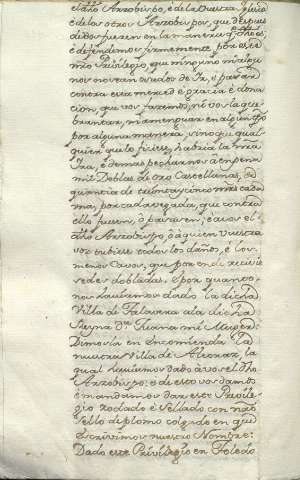 el dho Arzobispo, é de la Vuestra Iglesia
é de los otros Arzobispos, que despues
de Vos fueren en la manera q. dho es
é defendemos firmemente por este
mio Privilegio que ninguno ni algu
nos non sean osados de Ir, é pasar
contra esta merced é grazia é dona
cion, que vos fazemos, ni vos la que
brantar, ni amenguar en algun tpo
por alguna manera, si no qualqual
quier que lo ficiere, habria la mia
Ira, é demas pecharnos á en pena
mil Doblas de oro Casellanas, de
quantia de treinta y cinco mrs cada
una, por cada vegada, que contra
ello fueren, ó pasaren; é á vos el
dho Arzobispo, ó á quien vuestra
voz tubiese todos los daños, é los
menos Cavos, que por ende recivie
sedes doblados. E por quanto
nos huvimos dado la dicha
Villa de Talavera a la dicha
Reyna Dª Juana mi Muger
Dimosla en Encomienda la
nuestra Villa de Alcaraz, la
qual huvimos dado á vos el dho
Arzobispo: é de esto vos damos
é mandamos dar este Privile
gio rodado é Sellado con nro
sello de plomo colgado en que
Escrivimos nuestro Nombre:
Dado este Privilegio en Toledo